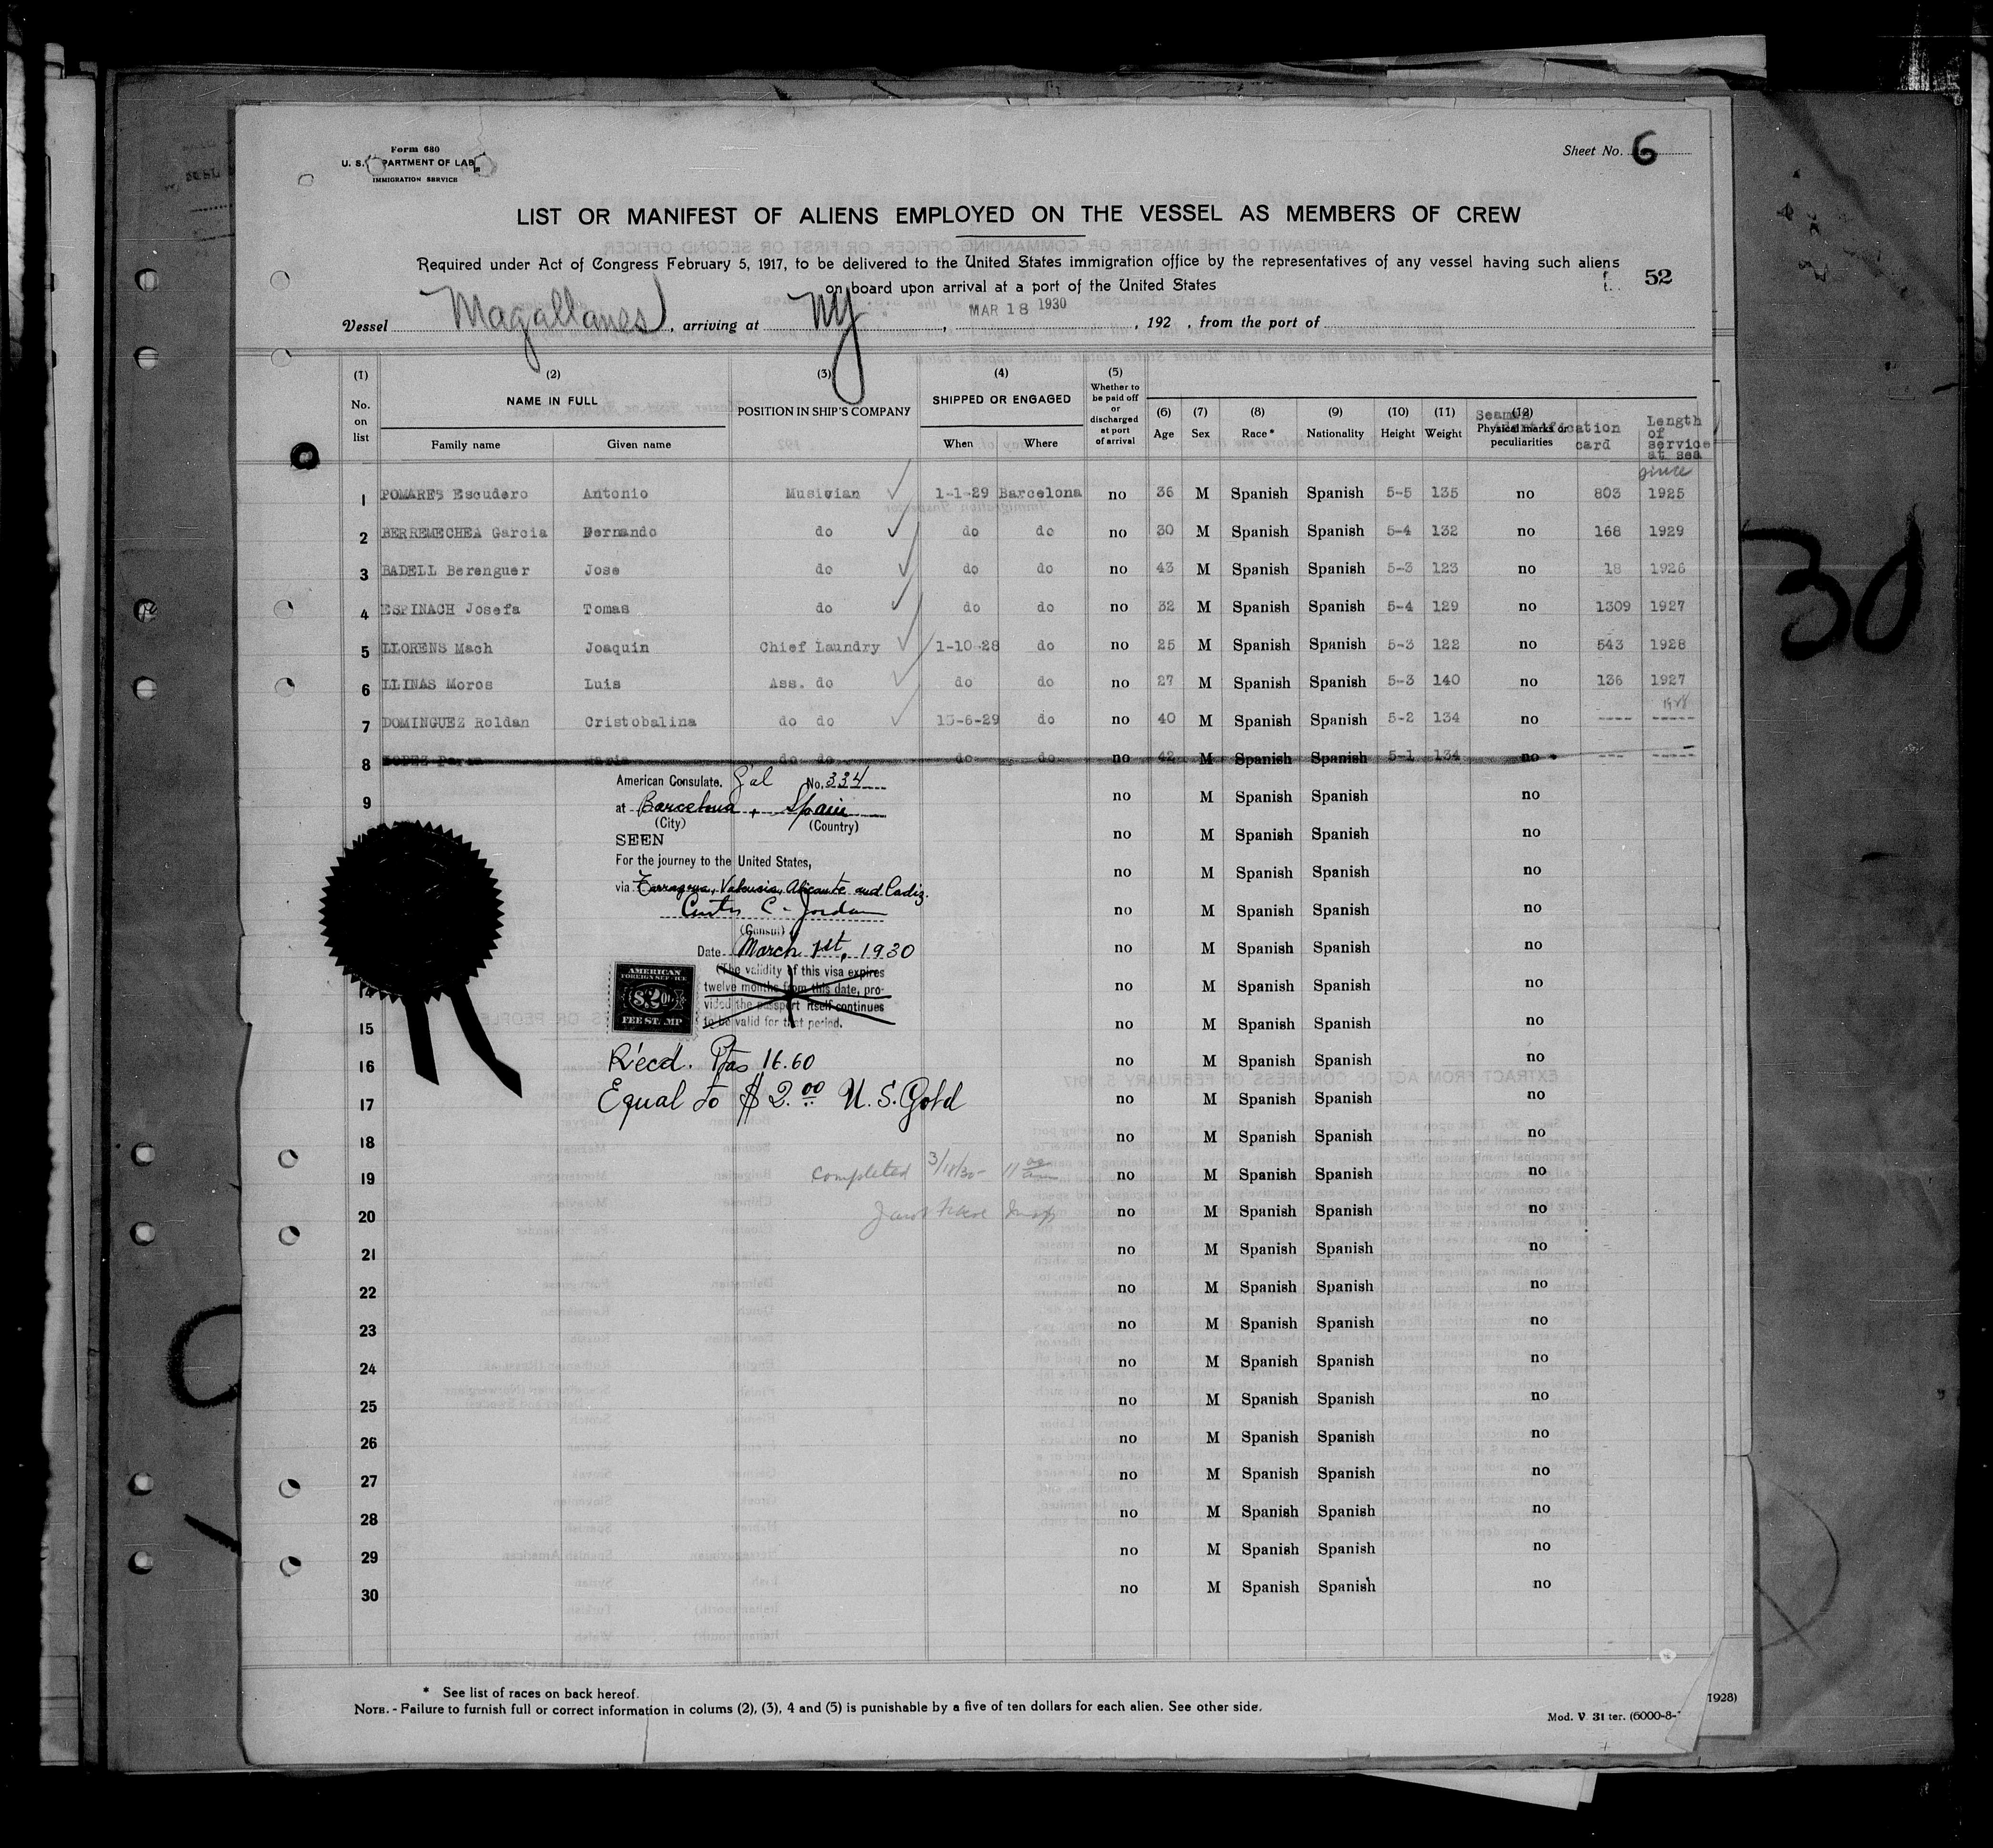 Form 680
U. S. DEPARTMENT OF LAB
IMMIGRATION SERVICE
Sheet No. 6
LIST OR MANIFEST OF ALIENS EMPLOYED ON THE VESSEL AS MEMBERS OF CREW
Required under Act of Congress February 5, 1917, to be delivered to the United States immigration office by the representatives of any vessel having such aliens
on board upon arrival at a port of the United States
52
Vessel Magallanes, arriving at Ny, MAR 18 1930, 192 , from the port of
(1) No. on list
(2) NAME IN FULL Family name Given name
(3) POSITION IN SHIP'S COMPANY
(4) SHIPPED OR ENGAGED When Where
(5) Whether to be paid off or discharged at port of arrival
(6) Age
(7) Sex
(8) Race*
(9) Nationality
(10) Height
(11) Weight
(12) Physical marks or peculiarities
Seamen identification card
Length of service at sea
since
1 POMARES Escudero Antonio Musician 1-1-29 Barcelona no 36 M Spanish Spanish 5-5 135 no 803 1925
2 BERREMECHEA Garcia Fernando do do do no 30 M Spanish Spanish 5-4 132 no 168 1929
3 BADELL Berenguer Jose do do do no 43 M Spanish Spanish 5-3 123 no 18 1926
4 ESPINACH Josefa Tomas do do do no 32 M Spanish Spanish 5-4 129 no 1309 1927
5 LLORENS Mach Joaquin Chief Laundry 1-10-28 do no 25 M Spanish Spanish 5-3 122 no 543 1928
6 LLINAS Moros Luis Ass. do do do no 27 M Spanish Spanish 5-3 140 no 136 1927
7 DOMINGUEZ Roldan Cristobalina do do 15-6-29 do no 40 M Spanish Spanish 5-2 134 no ---- -----
8 Maria do do do do no 42 M Spanish Spanish 5-1 134 no --- -----
American Consulate. Gal No. 334
at Barcelona, Spain
(City) (Country)
SEEN
For the journey to the United States,
via Tarragona, Valencia, Alicante and Cadiz.
Curtis C. Jordan
(Consul)
Date March 1st, 1930
(The validity of this visa expires
twelve months from this date, pro-
vided the passport itself continues
to be valid for that period.
AMERICAN
FOREIGN SERVICE
$2.00
FEE STAMP
R'ecd. Ptas 16.60
Equal to $ 2.00 U. S. Gold
completed 3/18/30- 11 00
9 no M Spanish Spanish no
no M Spanish Spanish no
no M Spanish Spanish no
no M Spanish Spanish no
no M Spanish Spanish no
14 no M Spanish Spanish no
15 no M Spanish Spanish no
16 no M Spanish Spanish no
17 no M Spanish Spanish no
18 no M Spanish Spanish no
19 no M Spanish Spanish no
20 no M Spanish Spanish no
21 no M Spanish Spanish no
22 no M Spanish Spanish no
23 no M Spanish Spanish no
24 no M Spanish Spanish no
25 no M Spanish Spanish no
26 no M Spanish Spanish no
27 no M Spanish Spanish no
28 no M Spanish Spanish no
29 no M Spanish Spanish no
30 no M Spanish Spanish no
* See list of races on back hereof.
NOTE. - Failure to furnish full or correct information in colums (2), (3), 4 and (5) is punishable by a five of ten dollars for each alien. See other side.
Mod. V. 31 ter. (6000-8-
1928)
30